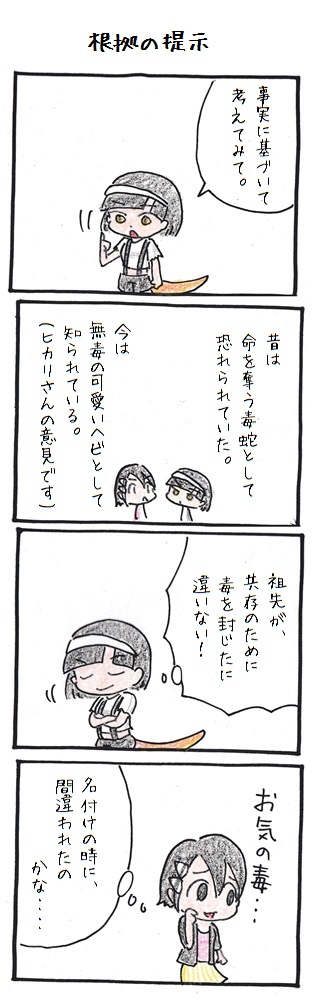 根拠の提示
事実に基づいて
考えてみて。
昔は
命を奪う毒蛇として
恐れられていた。
今は
無毒の可愛いヘビとして
知られている。
(ヒカリさんの意見です)
祖先が、
共存のために
毒を封じたに
違いない!
お気の毒・・・
名付けの時に、
間違われたの
かな・・・・